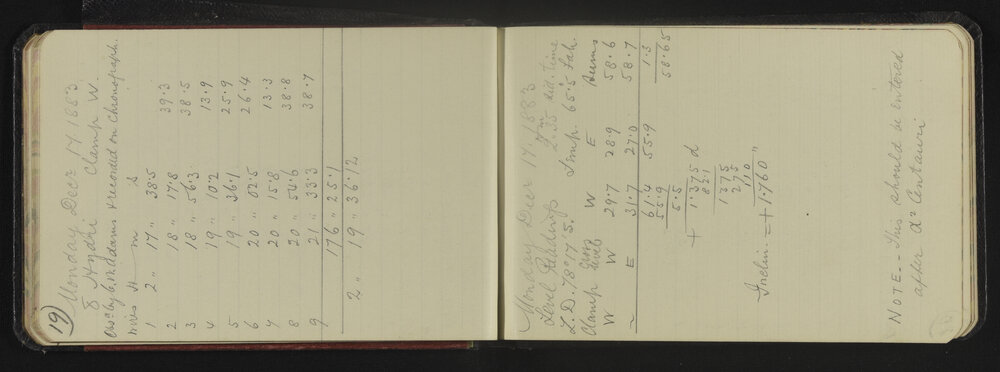 19)
Monday Decr 17. 1883
δ Hydri Clamp W.
Obsd by C. W. Adams & recorded on Chronograph.
Wires H m s
1 2 " 17 " 38.5
2 18 " 17.8 39.3
3 18 " 56.3 38.5
4 19 " 10.2 13.9
5 19 " 36.1 25.9
6 20 " 02.5 26.4
7 20 " 15.8 13.3
8 20 " 54.6 38.8
9 21 " 33.3 38.7
176 " 25.1
2 " 19 " 36.12
Monday Decr 17. 1883
Level Readings 2.35 sid. time
Z.D. 78° 17' S. Temp. 65.5 Fah.
Clamp Level W E Sums
W W 29.7 28.9 58.6
" E 31.7 27.0 58.7
61.4 55.9 1.3
55.9 58.65
5.5
+ 1.375 d
821
1375
275
110
Inclin. = + 1.760 "
NOTE.- This should be entered
after α2 Centauri